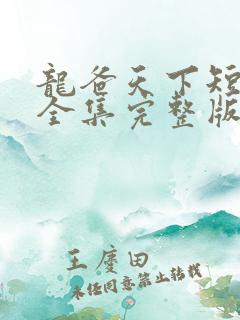 龍爸天下短
全集完整版
王慶田
未经同意禁止转载